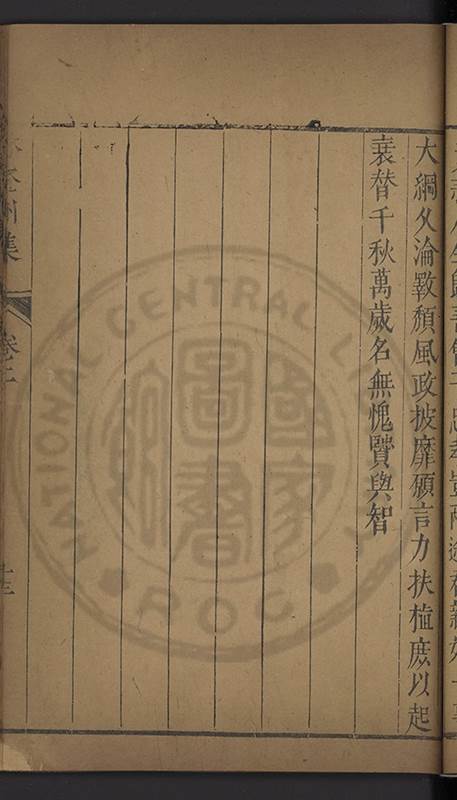 大綱久淪斁頽風政披靡願言力扶植庶以起
衰替千秋萬歲名無愧賢與智
集
卷二
十三
國家圖書
NATIONAL CENTRAL LI
ROC